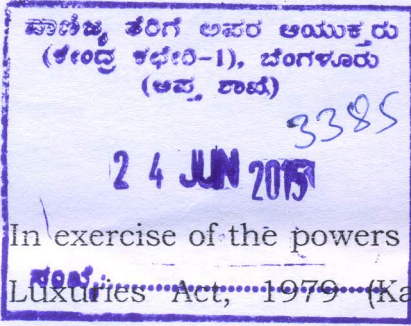 ವಾಣಿಜ್ಯ ತೆರಿಗೆ ಅಪರ ಆಯುಕ್ತರು
(ಕೇಂದ್ರ ಕಛೇರಿ-1), ಬೆಂಗಳೂರು
(ಆಪ್ತ ಶಾಖೆ)
3385
24 JUN 2015
In exercise of the powers
ಸಂಖ್ಯೆ:
Luxuries Act, 1979 (Ka